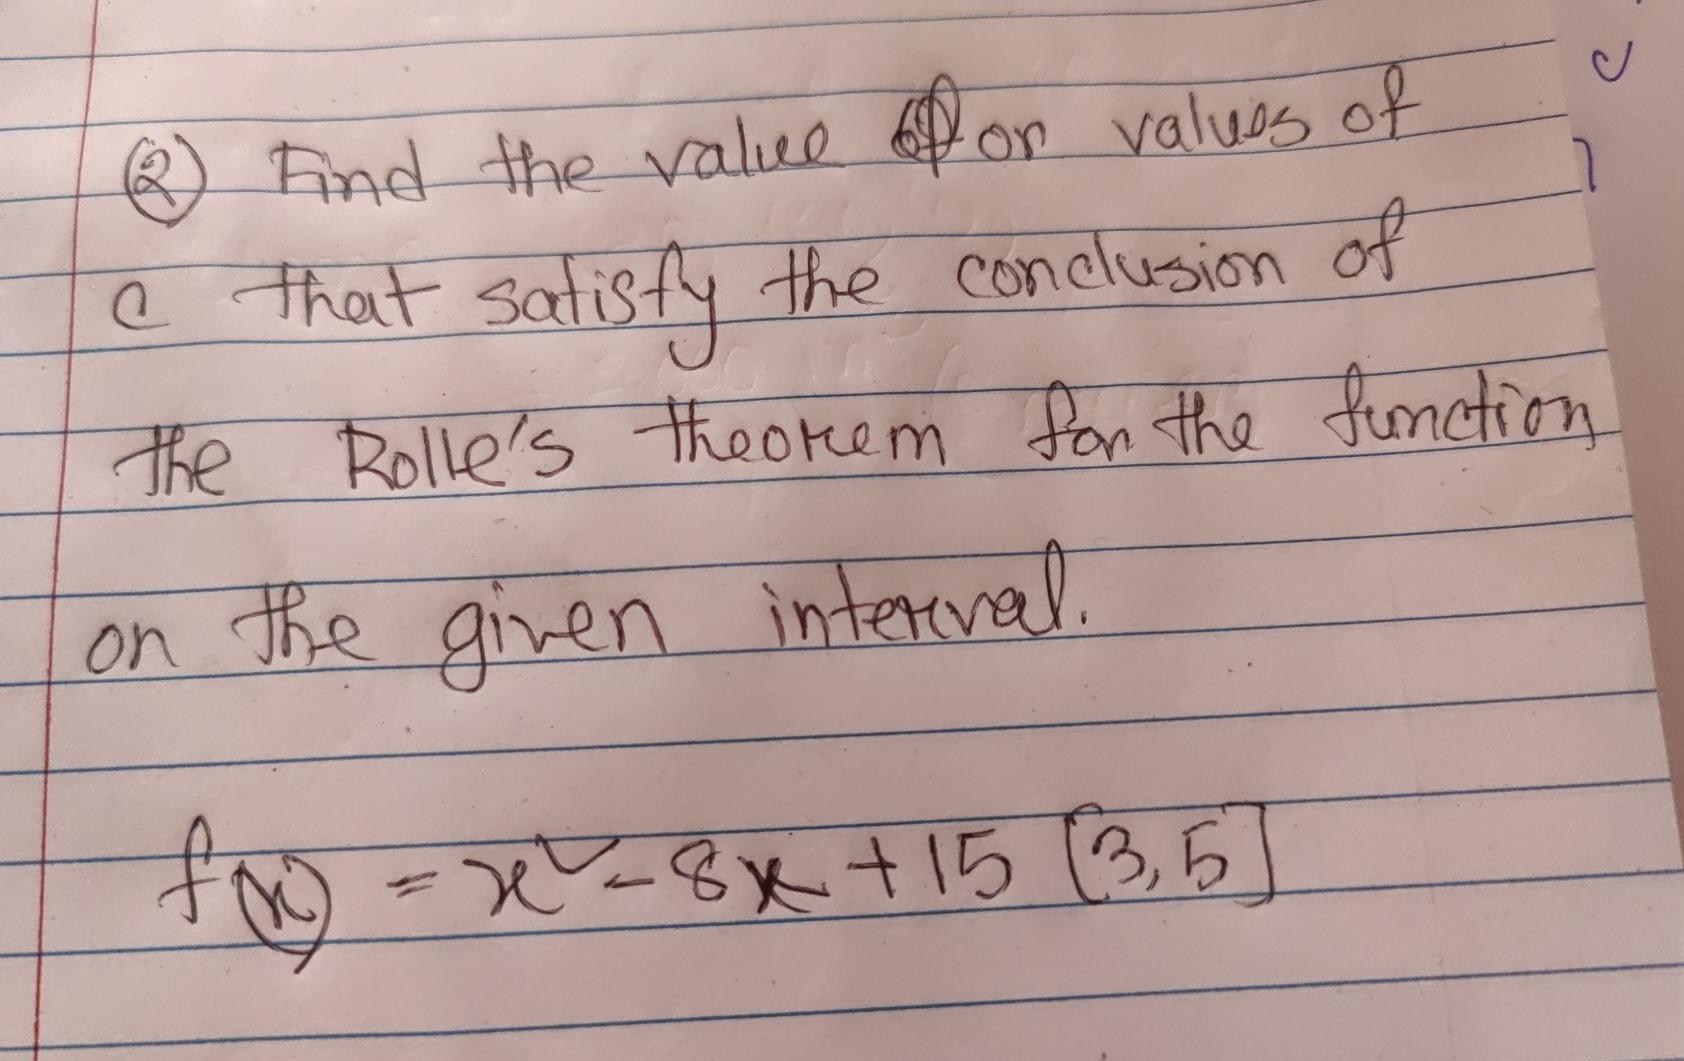 ② Find the value of or values of
c that satisfy the conclusion of
the Rolle's theorem for the function
on the given interval.
f(x) = x² - 8x + 15 [3, 5]